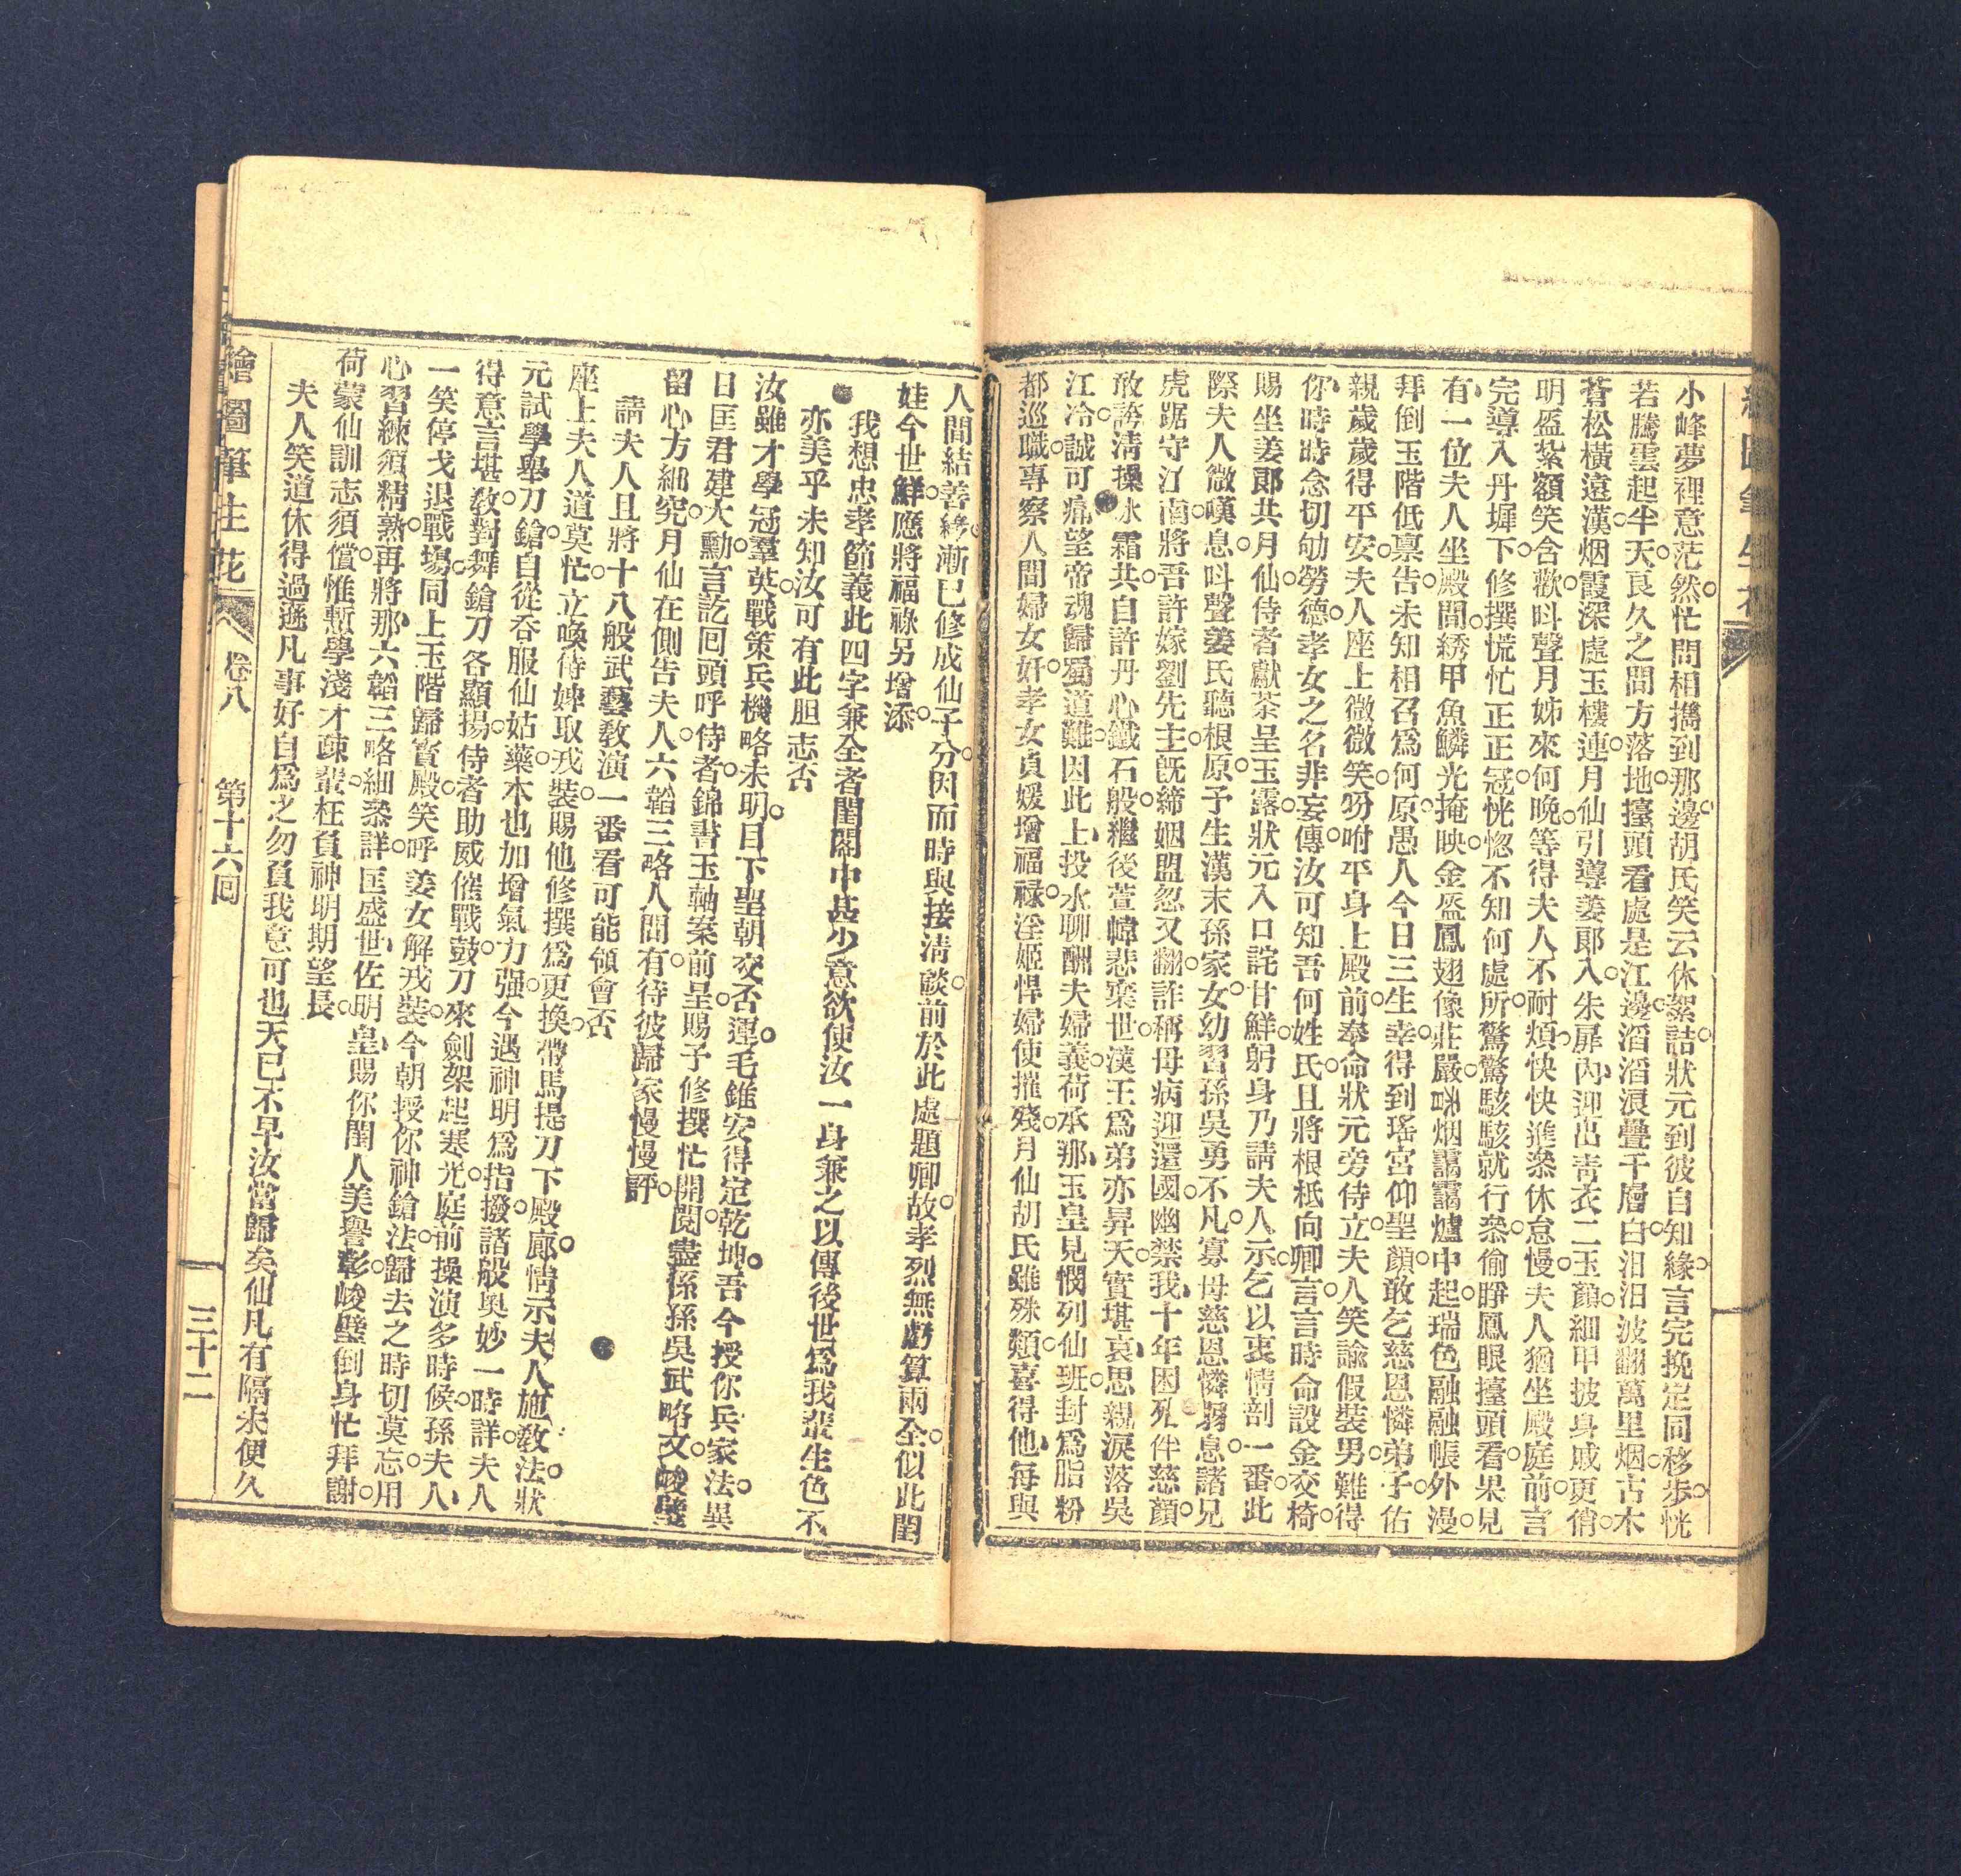 小峰夢裡意茫然○忙問相攜到那邊○胡氏笑云休絮詰○狀元到彼自知緣○言完挽定同移步○恍
若騰雲起半天○良久之間方落地○擡頭看處是江邊○滔滔滾浪疊千層○白汨汨波翻萬里烟○古木
蒼松橫遠漢○烟霞深處玉樓連○月仙引導姜郞入○朱扉內迎出靑衣二玉顏○細甲披身戚更俏○
明盔紮額笑含歡○呌聲月姊來何晚○等得夫人不耐煩○快快進叅休怠慢○夫人猶坐殿庭前○言
完導入丹墀下○修撰慌忙正正冠○恍惚不知何處所○驚驚駭駭就行叅○偷睜鳳眼擡頭看○果見
有一位夫人坐殿間○綉甲魚鱗光掩映○金盔鳳翅像莊嚴○烟靄靄爐中起○瑞色融融帳外漫○
拜倒玉階低禀告○未知相召爲何原○愚人今日三生幸○得到瑤宮仰聖顏○敢乞慈恩憐弟子○佑
親歲歲得平安○夫人座上微微笑○吩咐平身上殿前○奉命狀元旁侍立○夫人笑諭假裝男○難得
你時時念切劬勞德○孝女之名非妄傳○汝可知吾何姓氏○且將根柢向卿言○言時命設金交椅○
賜坐姜郞共月仙○侍者獻茶呈玉露○狀元入口詫甘鮮○躬身乃請夫人示○乞以衷情剖一番○此
際夫人微嘆息○呌聲姜氏聽根原○予生漢末孫家女○幼習孫吳勇不凡○寡母慈恩憐弱息○諸兄
虎踞守江南○將吾許嫁劉先主○旣締姻盟忽又翻○詐稱母病迎還國○幽禁我十年困死伴慈顏○
敢誇淸操冰霜共○自許丹心鐵石般○繼後萱幃悲棄世○漢王爲弟亦昇天○實堪哀思親淚落吳
江冷○誠可痛望帝魂歸蜀道難○因此上投水聊酬夫婦義○荷承那玉皇見憫列仙班○封爲脂粉
都巡職○專察人間婦女奸○孝女貞媛增福祿○淫姬悍婦使摧殘○月仙胡氏雖殊類○喜得他每與
人間結善緣○漸已修成仙子分○因而時與接淸談○前於此處題卿故○孝烈無虧算兩全○似此閨
娃今世鮮○應將福祿另增添○
我想忠孝節義此四字兼全者閨閣中甚少意欲使汝一身兼之以傳後世爲我輩生色不
亦美乎未知汝可有此胆志否
汝雖才學冠羣英○戰策兵機略未明○目下聖朝交否運○毛錐安得定乾坤○吾今授你兵家法○異
日匡君建大勳○言訖囘頭呼侍者○錦書玉軸案前呈○賜予修撰忙開閱○盡係孫吳武略文○峻璧
留心方細究○月仙在側告夫人○六韜三略人間有○待彼歸家慢慢評○
請夫人且將十八般武藝敎演一番看可能領會否
座上夫人道莫忙○立喚侍婢取戎裝○賜他修撰爲更換○帶馬提刀下殿廊○情示夫人施敎法○狀
元試學舉刀鎗○自從吞服仙姑藥○本也加增氣力强○今遇神明爲指撥○諸般奥妙一時詳○夫人
得意言堪敎○對舞鎗刀各顯揚○侍者助威催戰鼓○刀來劍架起寒光○庭前操演多時候○孫夫人
一笑停戈退戰塲○同上玉階歸寳殿○笑呼姜女解戎裝○今朝授你神鎗法○歸去之時切莫忘○用
心習練須精熟○再將那六韜三略細叅詳○匡盛世佐明皇○賜你閨人美譽彰○峻璧倒身忙拜謝○
荷蒙仙訓志須償○惟慙學淺才疎輩○枉負神明期望長○
夫人笑道休得過遜凡事好自爲之勿負我意可也天已不早汝當歸矣仙凡有隔未便久
繪圖筆生花
卷八
第十六囘
三十二